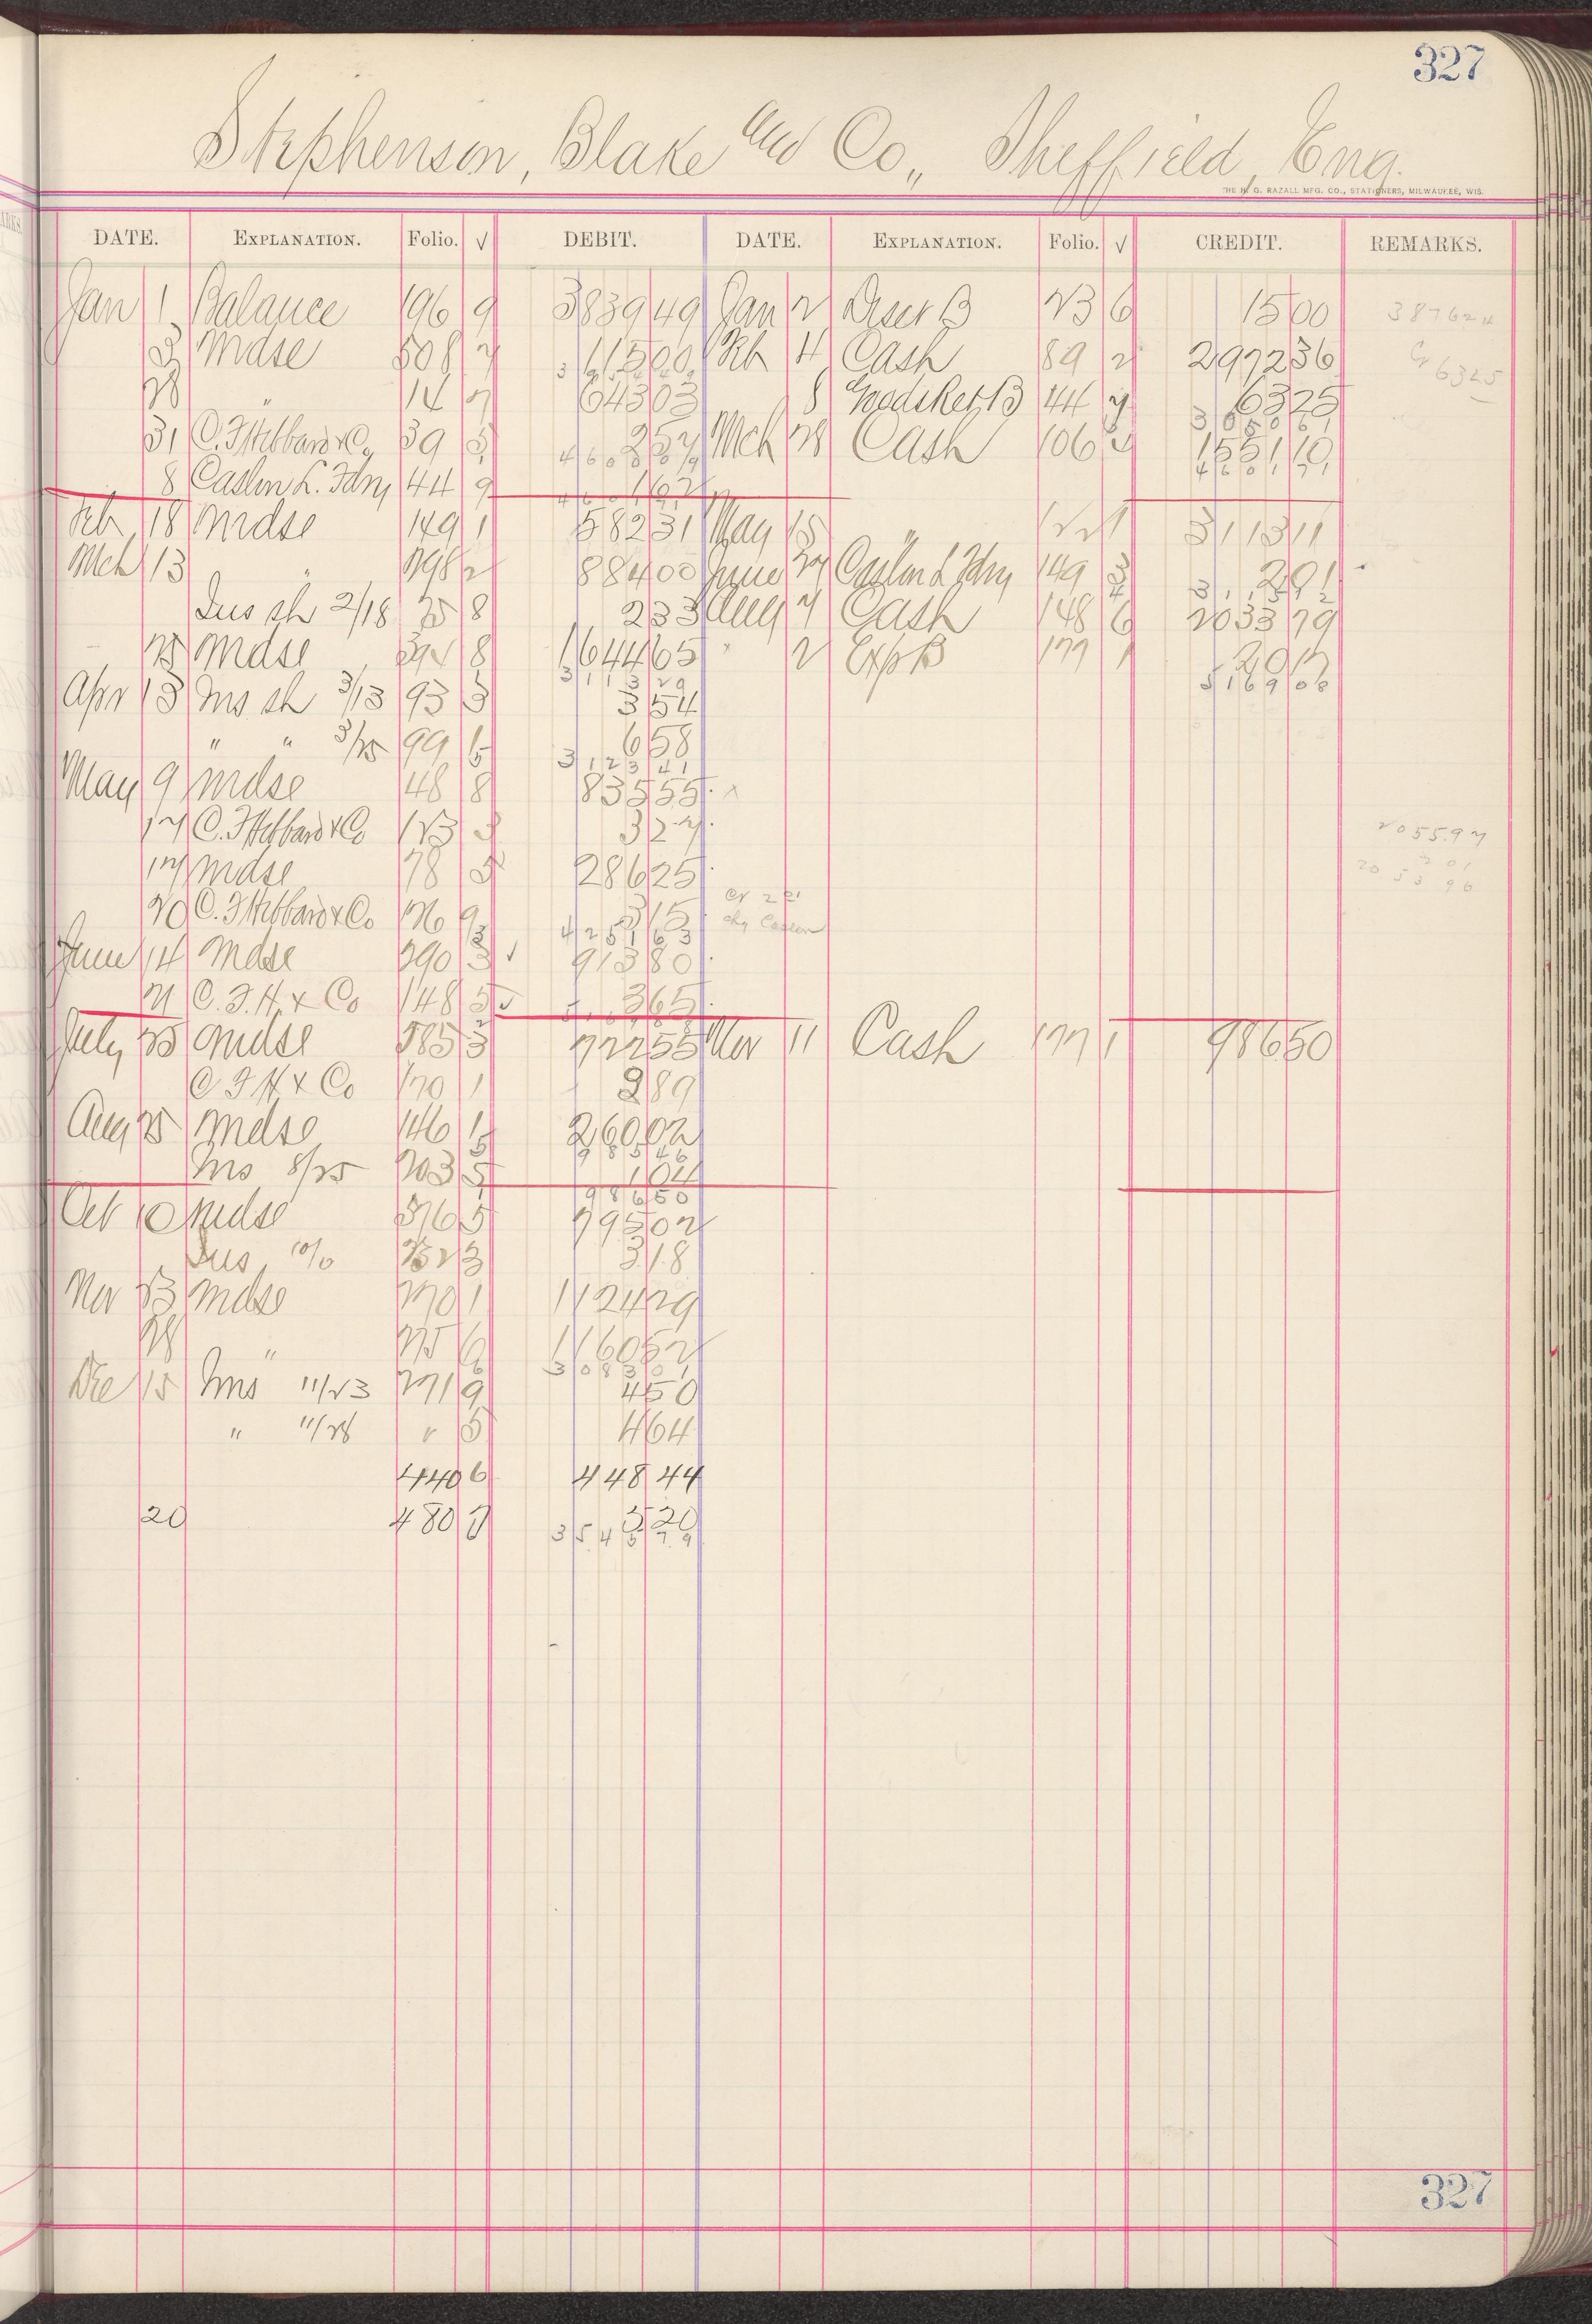 327
Stephenson, Blake and Co., Sheffield, Eng.
THE H. G. RAZALL MFG. CO., STATIONERS, MILWAUKEE, WIS.
DATE. EXPLANATION. Folio. √ DEBIT. DATE. EXPLANATION. Folio. √ CREDIT. REMARKS.
Jan 1 Balance 196 9 3839 49 Jan 2 Discr B 23 6 15 00 3876 24
3 Mdse 508 7 11 500 Feb 4 Cash 89 2 2972 36 Cr 63 25
28 " 14 7 643 03 8 Goods Ret B 44 7 63 25
31 C. I. Hebbard & Co 39 3 2 57 Mch 28 Cash 106 2 1551 10
8 Caslon L. Fdry 44 9 1 62
Feb 18 Mdse 149 1 582 31 May 15 " 311 3 11
Mch 13 " 298 2 884 00 June 27 Caslon L Fdry 149 3 2 91
Ins sh 2/18 75 8 2 33 Aug 7 Cash 148 6 2033 79
25 Mdse 394 8 1644 65 " 2 Exp B 177 1 20 17
3113 29 5169 08
Apr 13 Ins sh 3/13 93 3 3 54
" " 3/25 99 6 6 58
3123 41
May 9 Mdse 48 8 835 55
17 C. I. Hebbard & Co 123 3 3 27 2055.97
17 Mdse 78 5 286 25 2 01
2053 96
20 C. I. Hebbard & Co 126 9 3 15 Cr 2 91
4251 63 chg Caslon
June 14 Mdse 290 3 √ 913 80
21 C. I. H. & Co 148 5 √ 3 65
July 25 Mdse 585 3 722 55 Nov 11 Cash 177 1 986 50
C I H & Co 170 1 2 89
Aug 25 Mdse 146 1 260 02
985 46
Ins 8/25 203 5 1 04
986 50
Oct 10 Mdse 376 5 795 02
Ins 10/10 252 3 3 18
Nov 23 Mdse 270 1 1124 29
28 " 275 6 1160 52
3083 01
Dec 15 Ins 11/23 271 9 4 50
" 11/28 " 5 4 64
440 6 448 44
20 480 7 5 20
3545 79
327